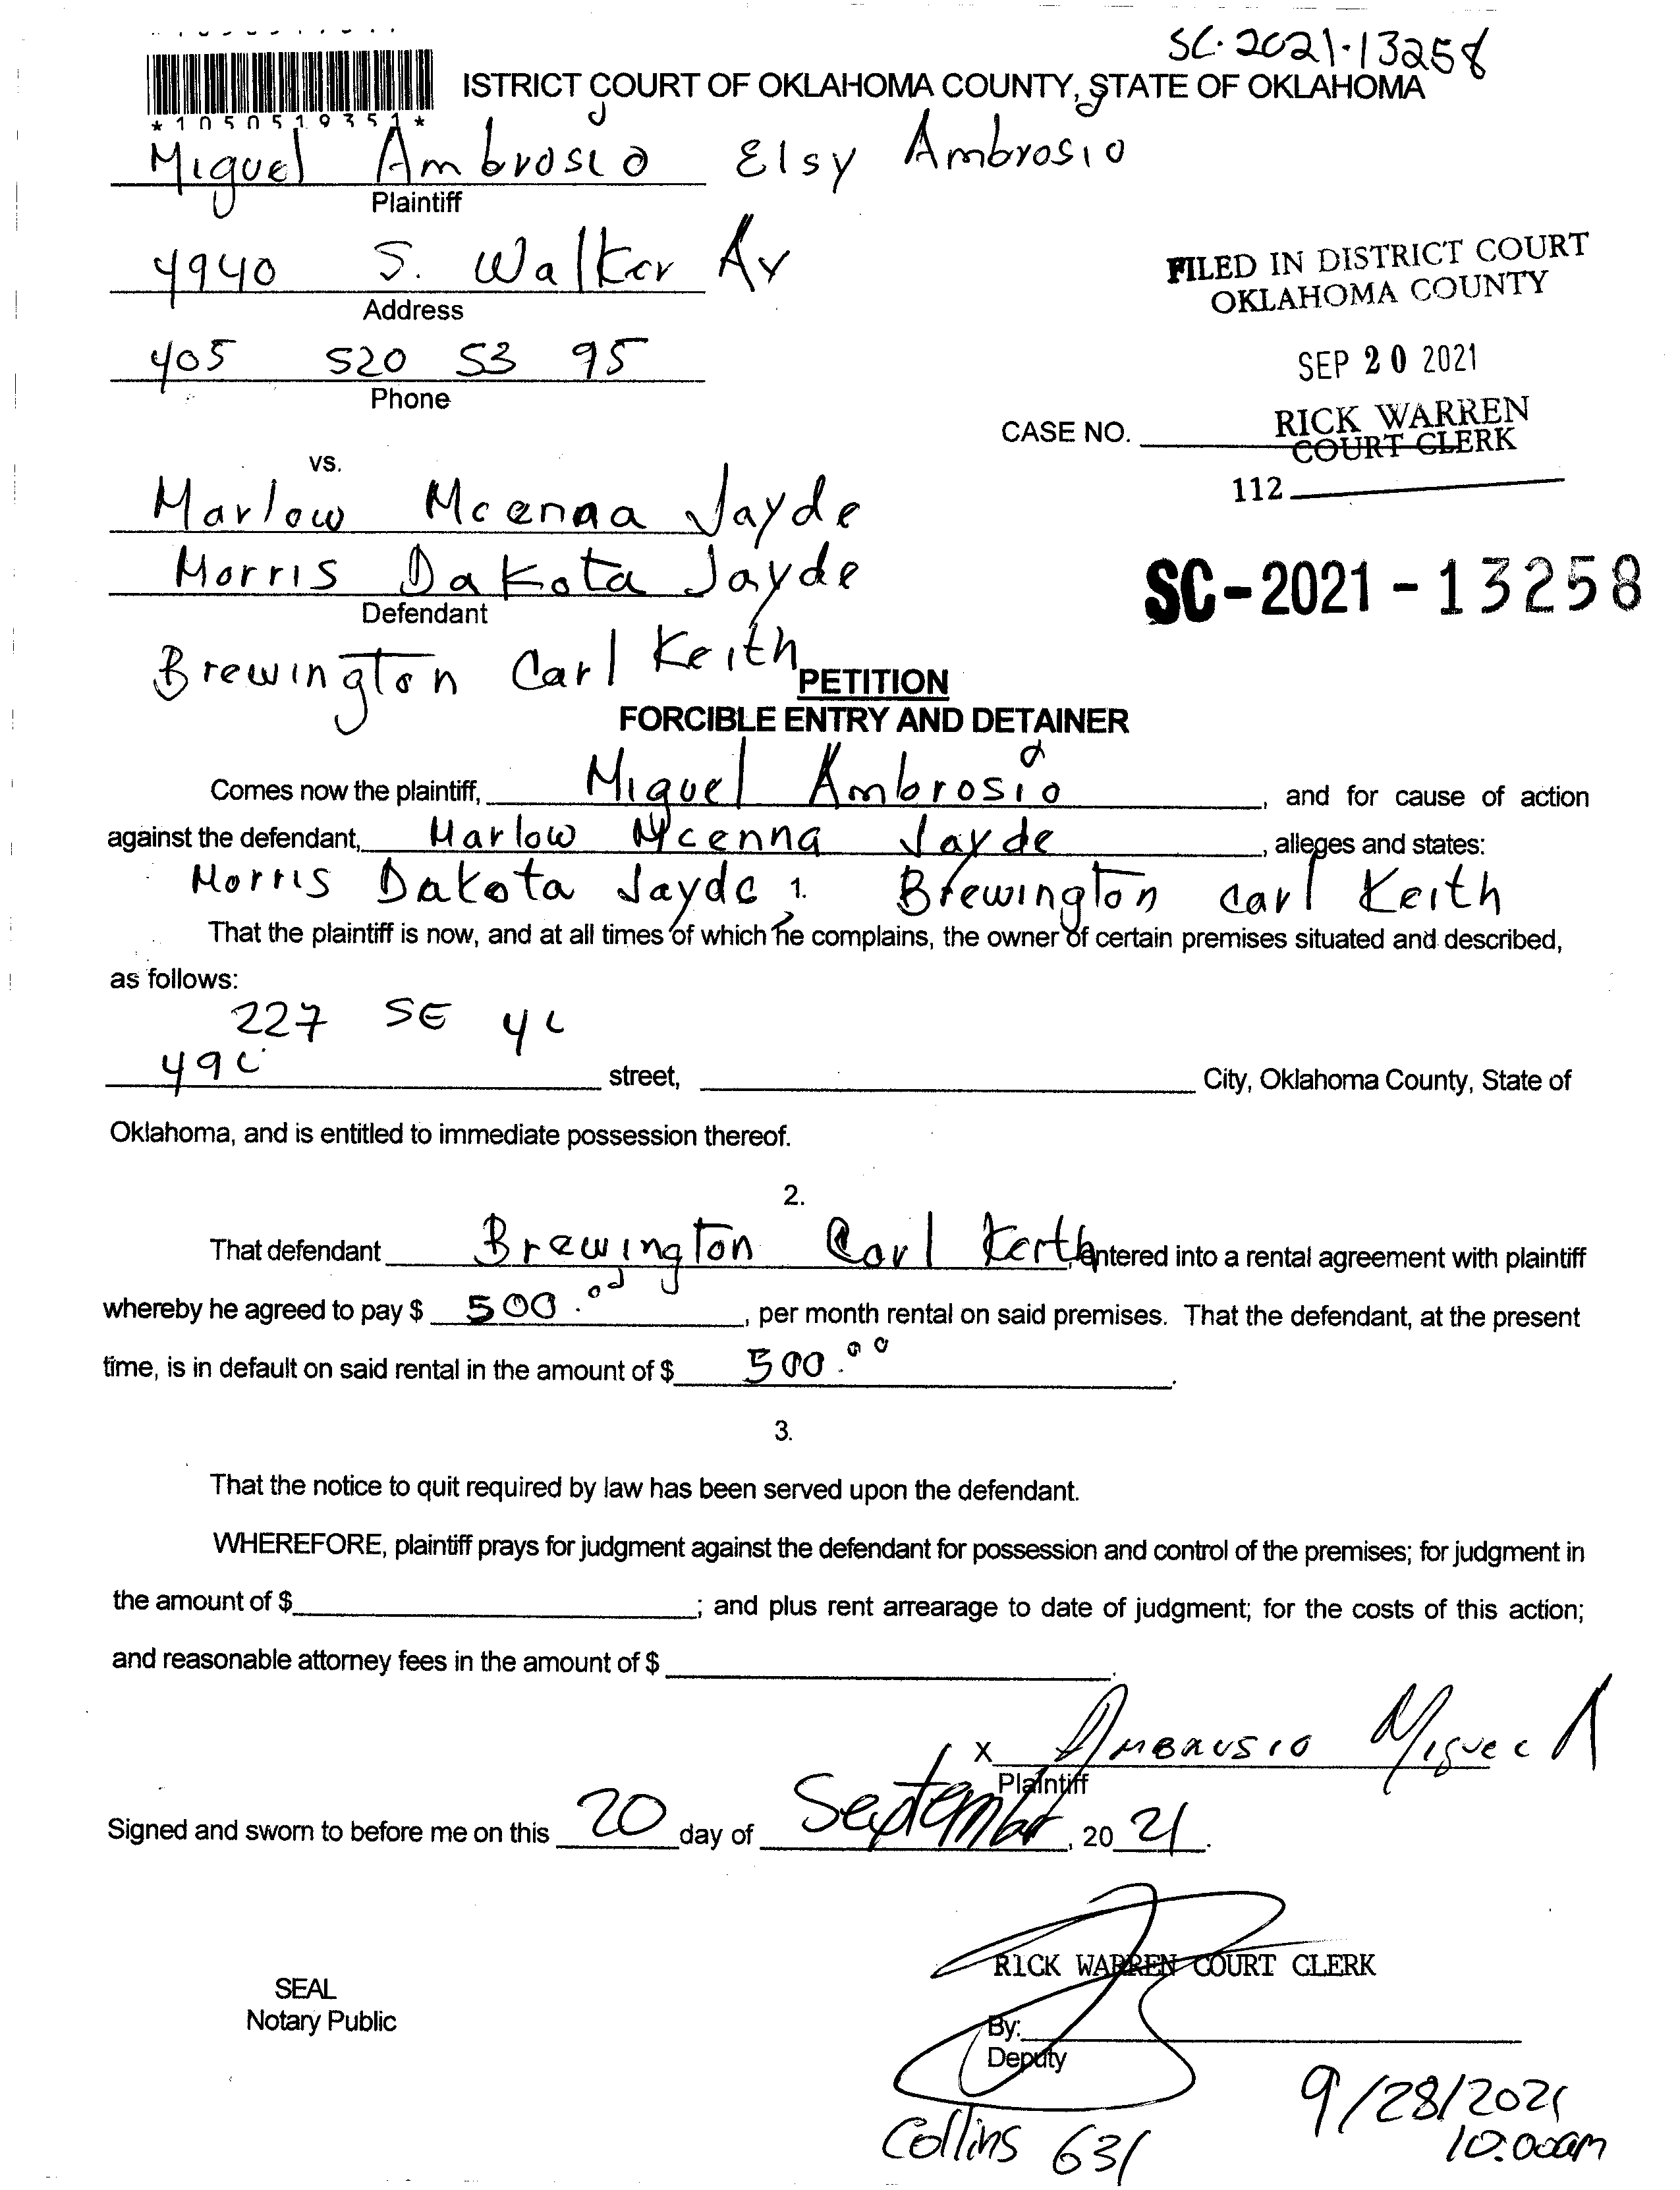 SC-2021-13258
ISTRICT COURT OF OKLAHOMA COUNTY, STATE OF OKLAHOMA
*1050519351*
Miguel Ambrosio Elsy Ambrosio
Plaintiff
4940 S. Walker Av
Address
FILED IN DISTRICT COURT
OKLAHOMA COUNTY
405 520 53 95
Phone
SEP 20 2021
CASE NO.
RICK WARREN
COURT CLERK
vs.
112
Marlow Mcenna Jayde
Morris Dakota Jayde
Defendant
SC-2021-13258
Brewington Carl Keith
PETITION
FORCIBLE ENTRY AND DETAINER
Comes now the plaintiff, Miguel Ambrosio, and for cause of action
against the defendant, Marlow Mcenna Jayde, alleges and states:
Morris Dakota Jayde 1. Brewington Carl Keith
That the plaintiff is now, and at all times of which he complains, the owner of certain premises situated and described,
as follows:
227 SE
street, City, Oklahoma County, State of
Oklahoma, and is entitled to immediate possession thereof.
2.
That defendant Brewington Carl Keith, entered into a rental agreement with plaintiff
whereby he agreed to pay $ 500.00, per month rental on said premises. That the defendant, at the present
time, is in default on said rental in the amount of $ 500.00.
3.
That the notice to quit required by law has been served upon the defendant.
WHEREFORE, plaintiff prays for judgment against the defendant for possession and control of the premises; for judgment in
the amount of $ ; and plus rent arrearage to date of judgment; for the costs of this action;
and reasonable attorney fees in the amount of $ .
X Ambrosio Miguel
Plaintiff
Signed and sworn to before me on this 20 day of September, 2021.
RICK WARREN COURT CLERK
SEAL
Notary Public
By:
Deputy
9/28/2021
10:00am
Collins 631